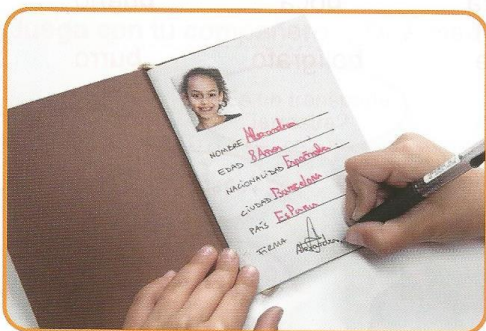 NOMBRE Alexandra
EDAD 8 Años
NACIONALIDAD Española
CIUDAD Barcelona
PAÍS España
FIRMA